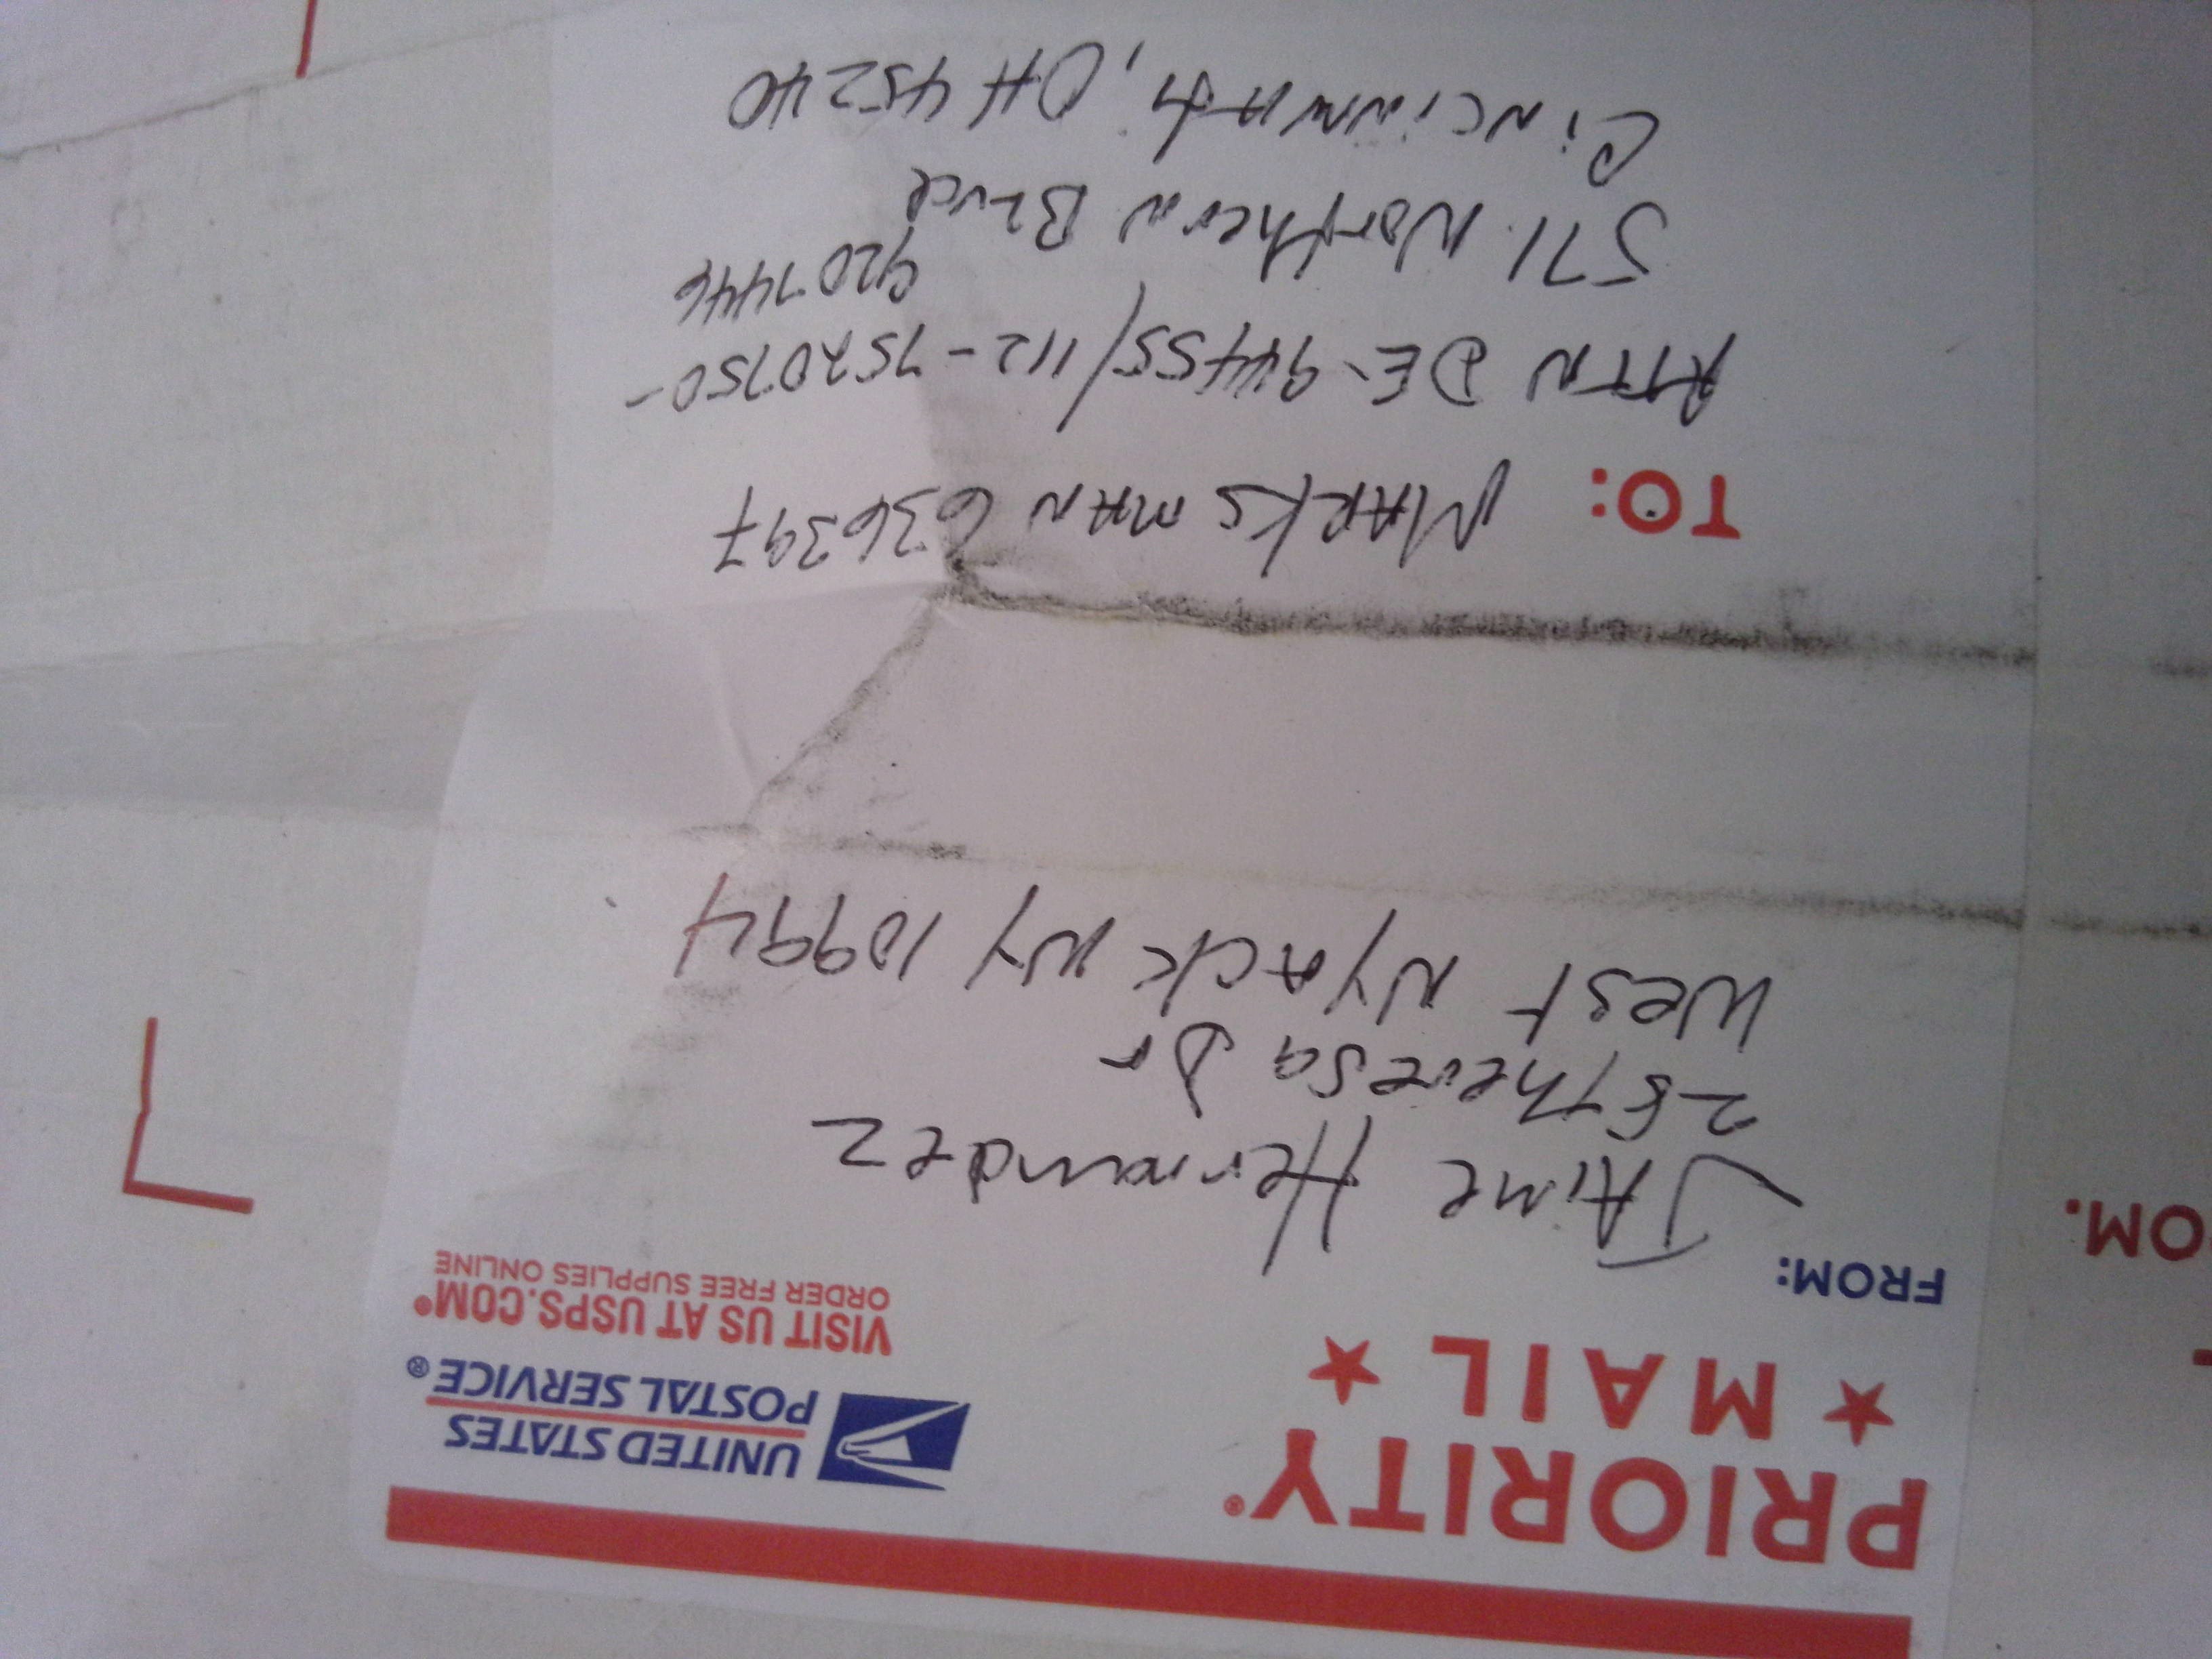 PRIORITY®
★ MAIL ★
UNITED STATES
POSTAL SERVICE®
VISIT US AT USPS.COM®
ORDER FREE SUPPLIES ONLINE
FROM:
JAIME Hernandez
28 Theresa Dr
West NYACK NY 10994
TO: MARKSMAN 636397
ATTN DE-94455/112-7520750-
9207446
571 Northern BLvd
CiNCiNNAti, OH 45240
OM.